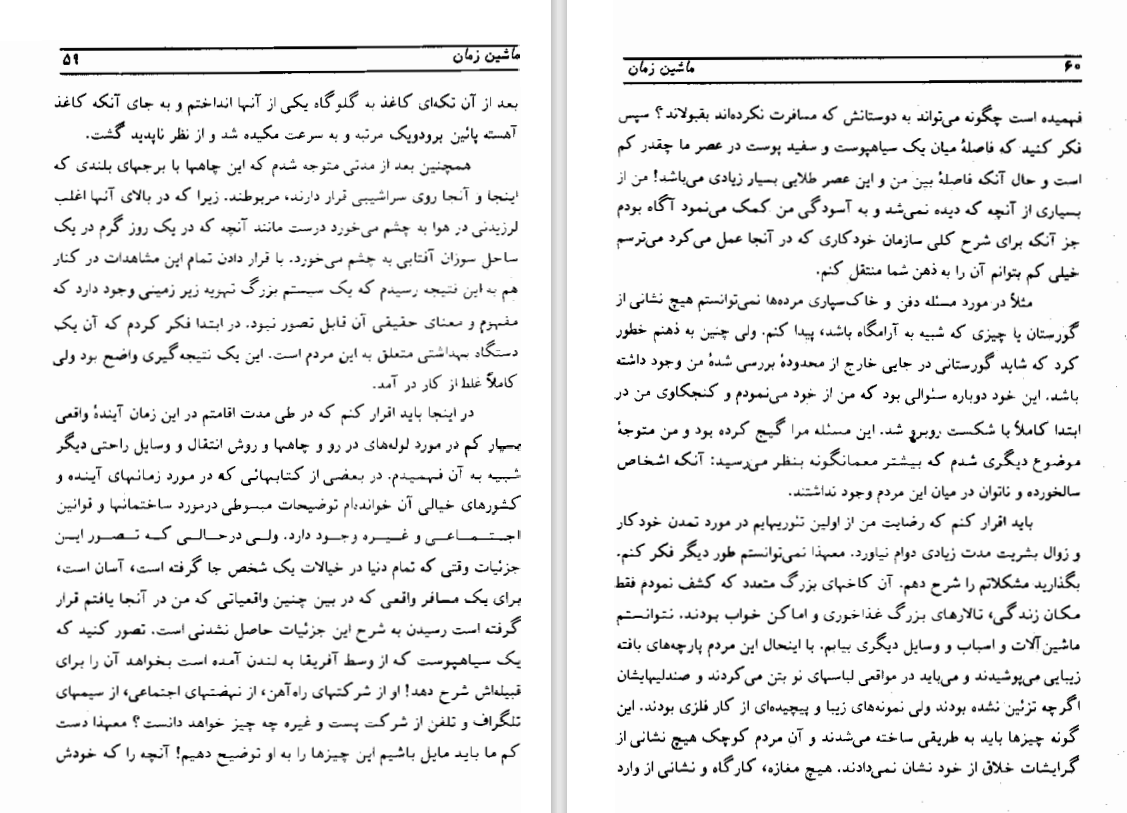 ماشین زمان ۵۹
بعد از آن تکه‌ای کاغذ به گلوگاه یکی از آنها انداختم و به جای آنکه کاغذ
آهسته پائین برودویک مرتبه و به سرعت مکیده شد و از نظر ناپدید گشت.
همچنین بعد از مدتی متوجه شدم که این چاهها با برجهای بلندی که
اینجا و آنجا روی سراشیبی قرار دارند، مربوطند. زیرا که در بالای آنها اغلب
لرزیدنی در هوا به چشم می‌خورد درست مانند آنچه که در یک روز گرم در یک
ساحل سوزان آفتابی به چشم می‌خورد. با قرار دادن تمام این مشاهدات در کنار
هم به این نتیجه رسیدم که یک سیستم بزرگ تهویه زیر زمینی وجود دارد که
مفهوم و معنای حقیقی آن قابل تصور نبود. در ابتدا فکر کردم که آن یک
دستگاه بهداشتی متعلق به این مردم است. این یک نتیجه‌گیری واضح بود ولی
کاملاً غلط از کار در آمد.
در اینجا باید اقرار کنم که در طی مدت اقامتم در این زمان آیندهٔ واقعی
بسیار کم در مورد لوله‌های در رو و چاهها و روش انتقال و وسایل راحتی دیگر
شبیه به آن فهمیدم. در بعضی از کتابهائی که در مورد زمانهای آینده و
کشورهای خیالی آن خوانده‌ام توضیحات مبسوطی درمورد ساختمانها و قوانین
اجتماعی و غیره وجود دارد. ولی درحالی که تصور این
جزئیات وقتی که تمام دنیا در خیالات یک شخص جا گرفته است، آسان است،
برای یک مسافر واقعی که در بین چنین واقعیاتی که من در آنجا یافتم قرار
گرفته است رسیدن به شرح این جزئیات حاصل نشدنی است. تصور کنید که
یک سیاهپوست که از وسط آفریقا به لندن آمده است بخواهد آن را برای
قبیله‌اش شرح دهد! او از شرکتهای راه‌آهن، از نهضتهای اجتماعی، از سیمهای
تلگراف و تلفن از شرکت پست و غیره چه چیز خواهد دانست؟ معهذا دست
کم ما باید مایل باشیم این چیزها را به او توضیح دهیم! آنچه را که خودش
۶۰ ماشین زمان
فهمیده است چگونه می‌تواند به دوستانش که مسافرت نکرده‌اند بقبولاند؟ سپس
فکر کنید که فاصلهٔ میان یک سیاهپوست و سفید پوست در عصر ما چقدر کم
است و حال آنکه فاصلهٔ بین من و این عصر طلایی بسیار زیادی می‌باشد! من از
بسیاری از آنچه که دیده نمی‌شد و به آسودگی من کمک می‌نمود آگاه بودم
جز آنکه برای شرح کلی سازمان خودکاری که در آنجا عمل می‌کرد می‌ترسم
خیلی کم بتوانم آن را به ذهن شما منتقل کنم.
مثلاً در مورد مسئله دفن و خاک‌سپاری مرده‌ها نمی‌توانستم هیچ نشانی از
گورستان یا چیزی که شبیه به آرامگاه باشد، پیدا کنم. ولی چنین به ذهنم خطور
کرد که شاید گورستانی در جایی خارج از محدودهٔ بررسی شدهٔ من وجود داشته
باشد. این خود دوباره سئوالی بود که من از خود می‌نمودم و کنجکاوی من در
ابتدا کاملاً با شکست روبرو شد. این مسئله مرا گیج کرده بود و من متوجهٔ
موضوع دیگری شدم که بیشتر معماگونه بنظر می‌رسید: آنکه اشخاص
سالخورده و ناتوان در میان این مردم وجود نداشتند.
باید اقرار کنم که رضایت من از اولین تئوریهایم در مورد تمدن خودکار
و زوال بشریت مدت زیادی دوام نیاورد. معهذا نمی‌توانستم طور دیگر فکر کنم.
بگذارید مشکلاتم را شرح دهم. آن کاخهای بزرگ متعدد که کشف نمودم فقط
مکان زندگی، تالارهای بزرگ غذاخوری و اماکن خواب بودند. نتوانستم
ماشین‌آلات و اسباب و وسایل دیگری بیابم. با اینحال این مردم پارچه‌های بافته
زیبایی می‌پوشیدند و می‌باید در مواقعی لباسهای نو بتن می‌کردند و صندلیهایشان
اگرچه تزئین نشده بودند ولی نمونه‌های زیبا و پیچیده‌ای از کار فلزی بودند. این
گونه چیزها باید به طریقی ساخته می‌شدند و آن مردم کوچک هیچ نشانی از
گرایشات خلاق از خود نشان نمی‌دادند. هیچ مغازه، کارگاه و نشانی از وارد